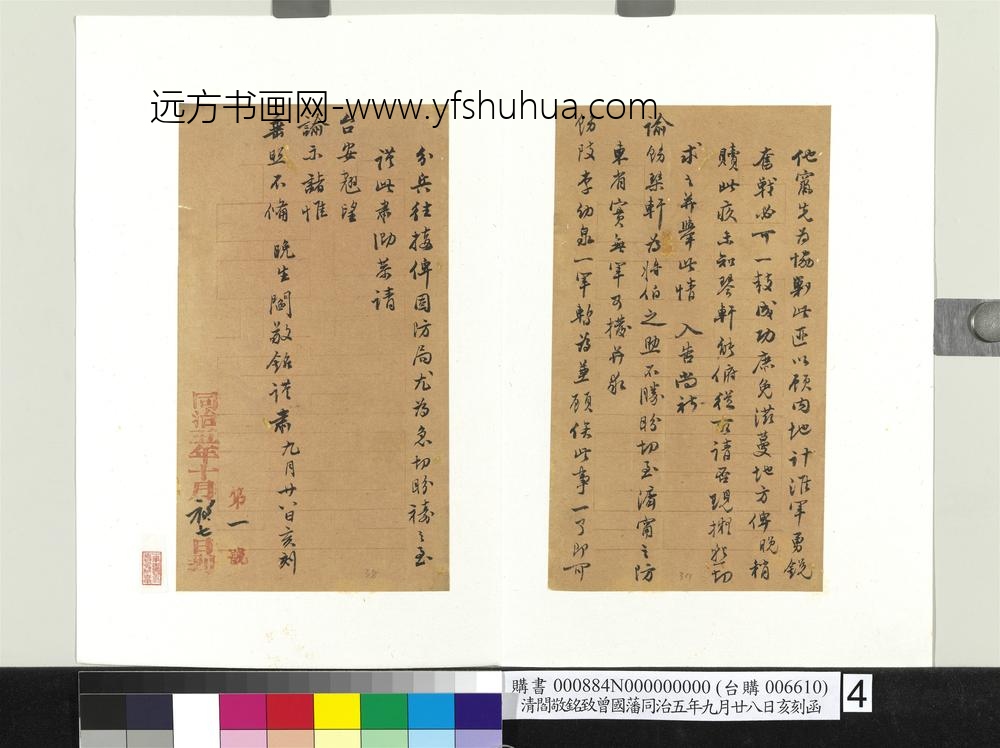 远方书画网-www.yfshuhua.com
他竄先为協剿此匪以顾内地計淮軍勇銳
奮戰必可一鼓成功庶免滋蔓地方俾晚稍
贖此疚未知琴軒能俯從所請否現擬懇切
求之并舉此情入告當祈
諭飭琴軒為將伯之助不勝盼切至濟甯之防
東省實無軍可撥并求
飭李幼泉一軍暫為兼顧俟此事一了即可
分兵往接俾固防局尤為急切盼禱之至
謹此肅泐恭請
台安翹望
諭示諸惟
垂照不備 晚生閻敬銘謹肅九月廿八日亥刻
第一號
同治五年十月初七日到
38
37
購書 000884N000000000 (台購 006610)
清閻敬銘致曾國藩同治五年九月廿八日亥刻函
4